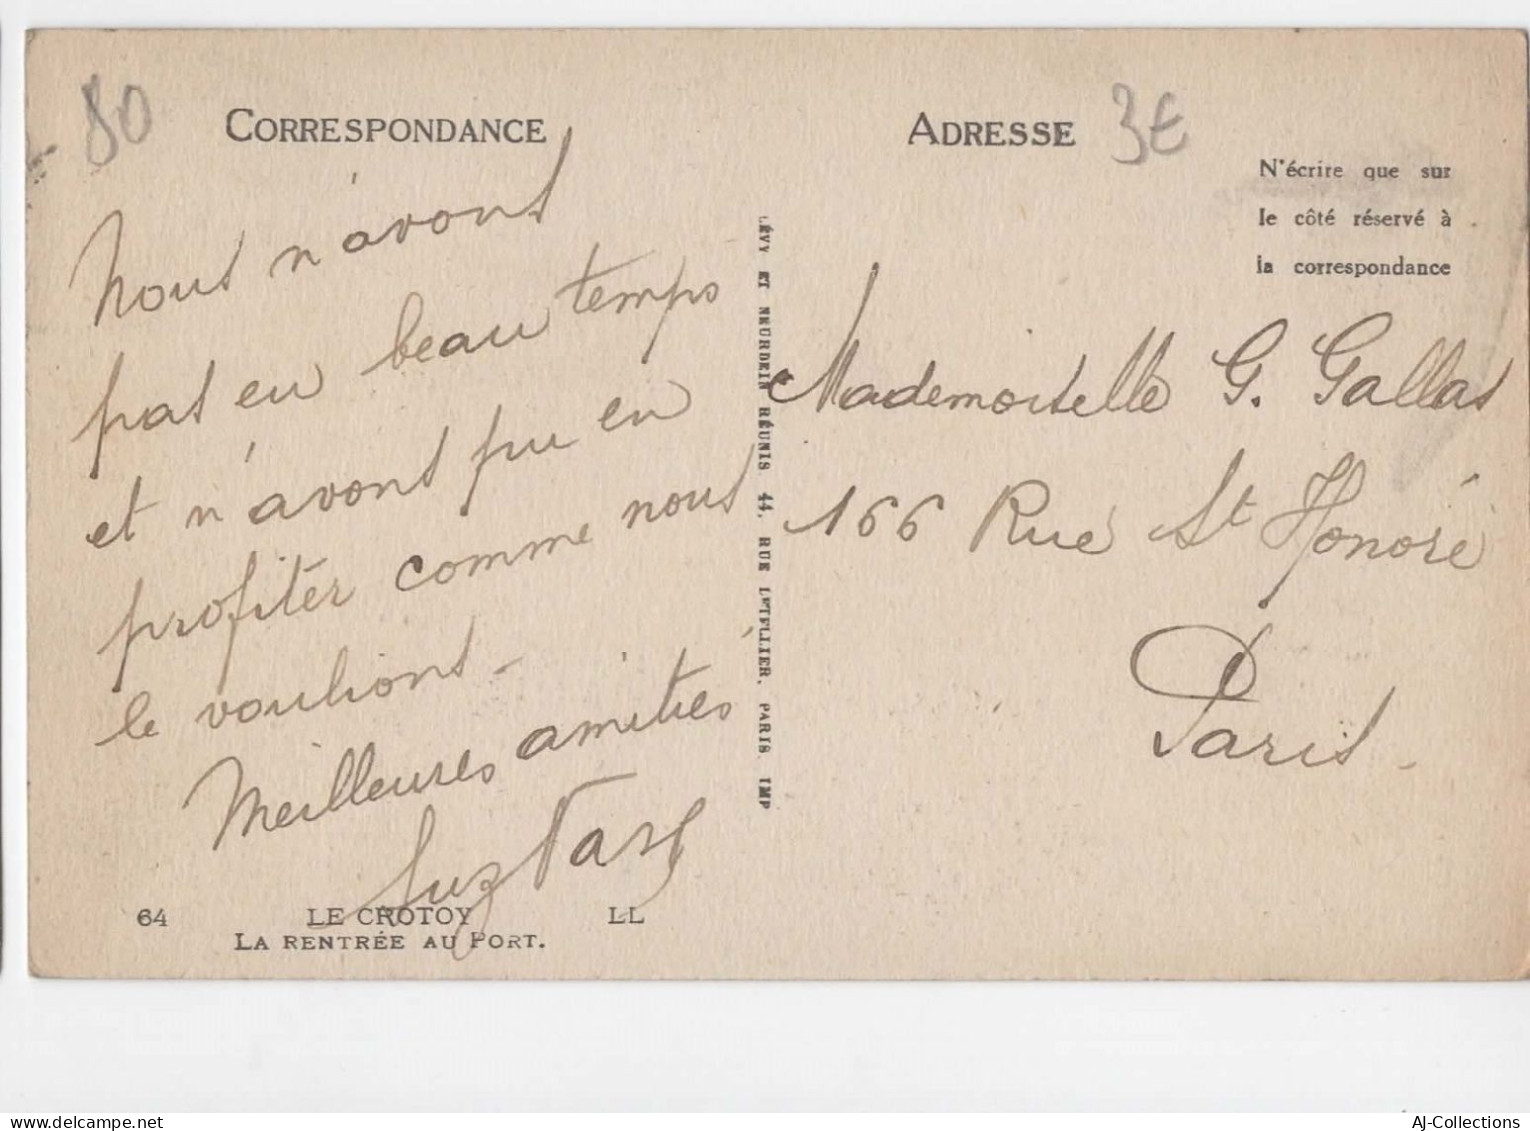 80
CORRESPONDANCE
Nous n'avons
pas eu beau temps
et n'avons pu en
profiter comme nous
le voulions -
Meilleures amitiés
64 LE CROTOY LL
LA RENTRÉE AU PORT.
LÉVY ET NEURDEIN RÉUNIS 44, RUE LETELLIER, PARIS IMP
ADRESSE
3€
N'écrire que sur
le côté réservé à
la correspondance
Mademoiselle G. Gallas
166 Rue St Honoré
Paris -
delcampe.net
AJ-Collections